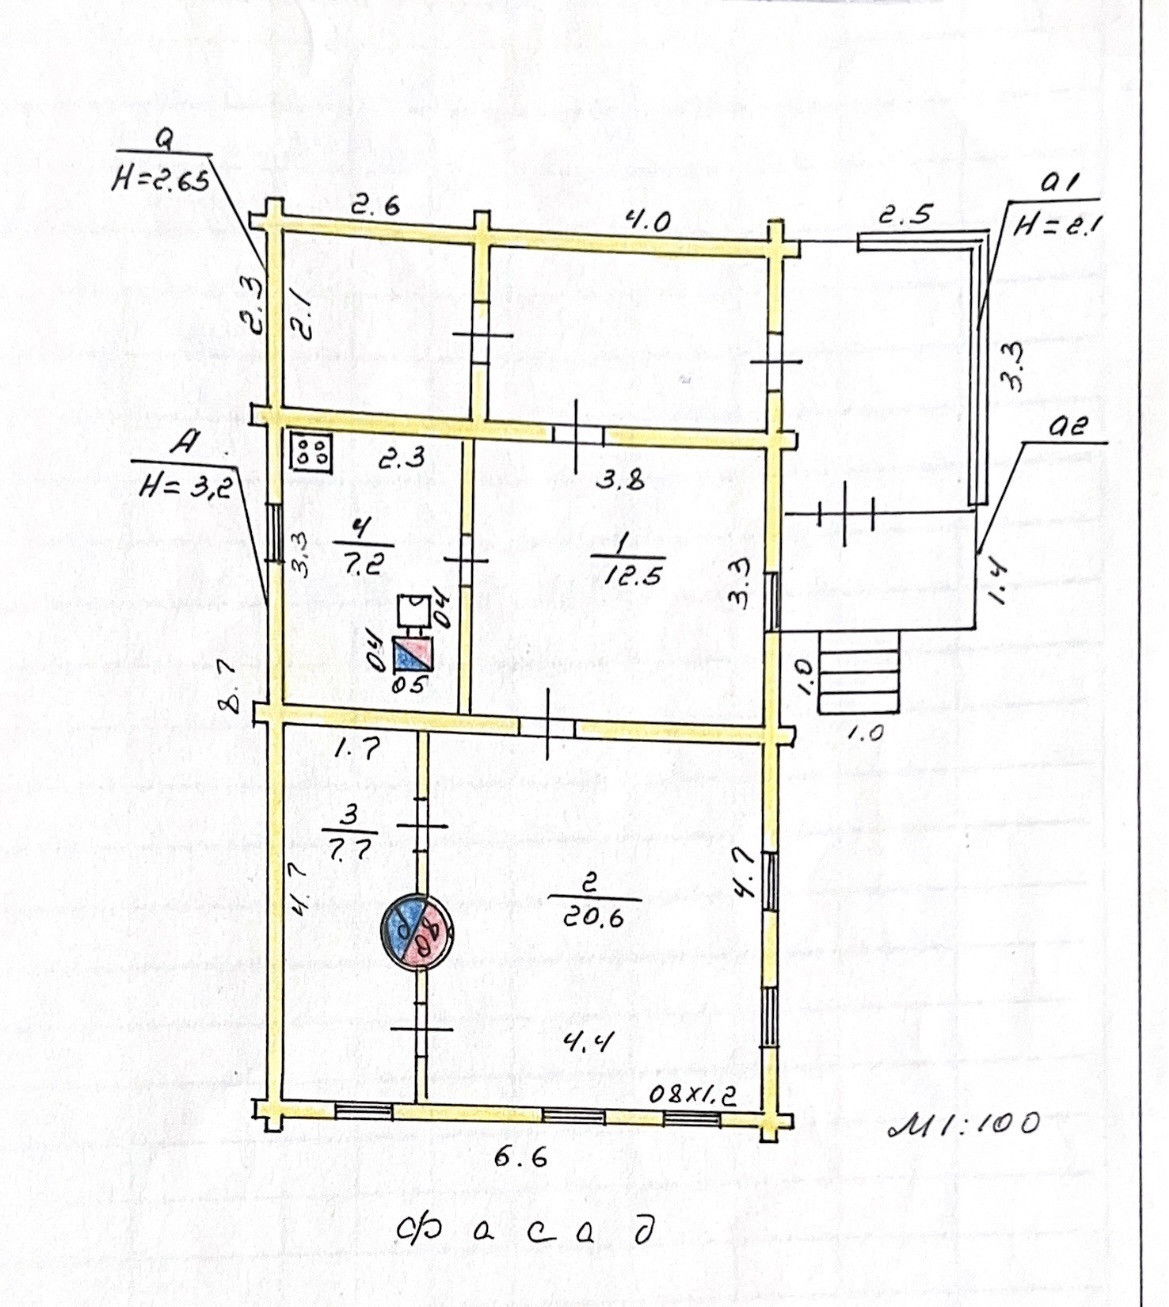 a
H=2.65
2.6
4.0
2.5
a1
H=2.1
2.3
2.1
3.3
a2
A
H=3,2
2.3
3.8
4
7.2
3.3
1
12.5
3.3
1.4
04
04
05
8.7
1.0
1.0
1.7
3
7.7
4.7
2
20.6
4.7
08
4.4
08x1.2
М 1:100
6.6
Фасад